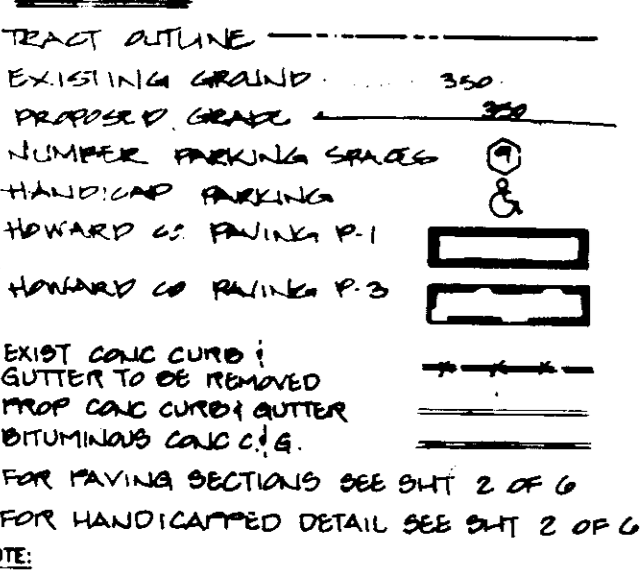 TRACT OUTLINE
EXISTING GROUND 350
PROPOSED GRADE 350
NUMBER PARKING SPACES 9
HANDICAP PARKING
HOWARD CO. PAVING P-1
HOWARD CO PAVING P-3
EXIST CONC CURB &
GUTTER TO BE REMOVED
PROP CONC CURB & GUTTER
BITUMINOUS CONC C & G.
FOR PAVING SECTIONS SEE SHT 2 OF 6
FOR HANDICAPPED DETAIL SEE SHT 2 OF 6
OTE: